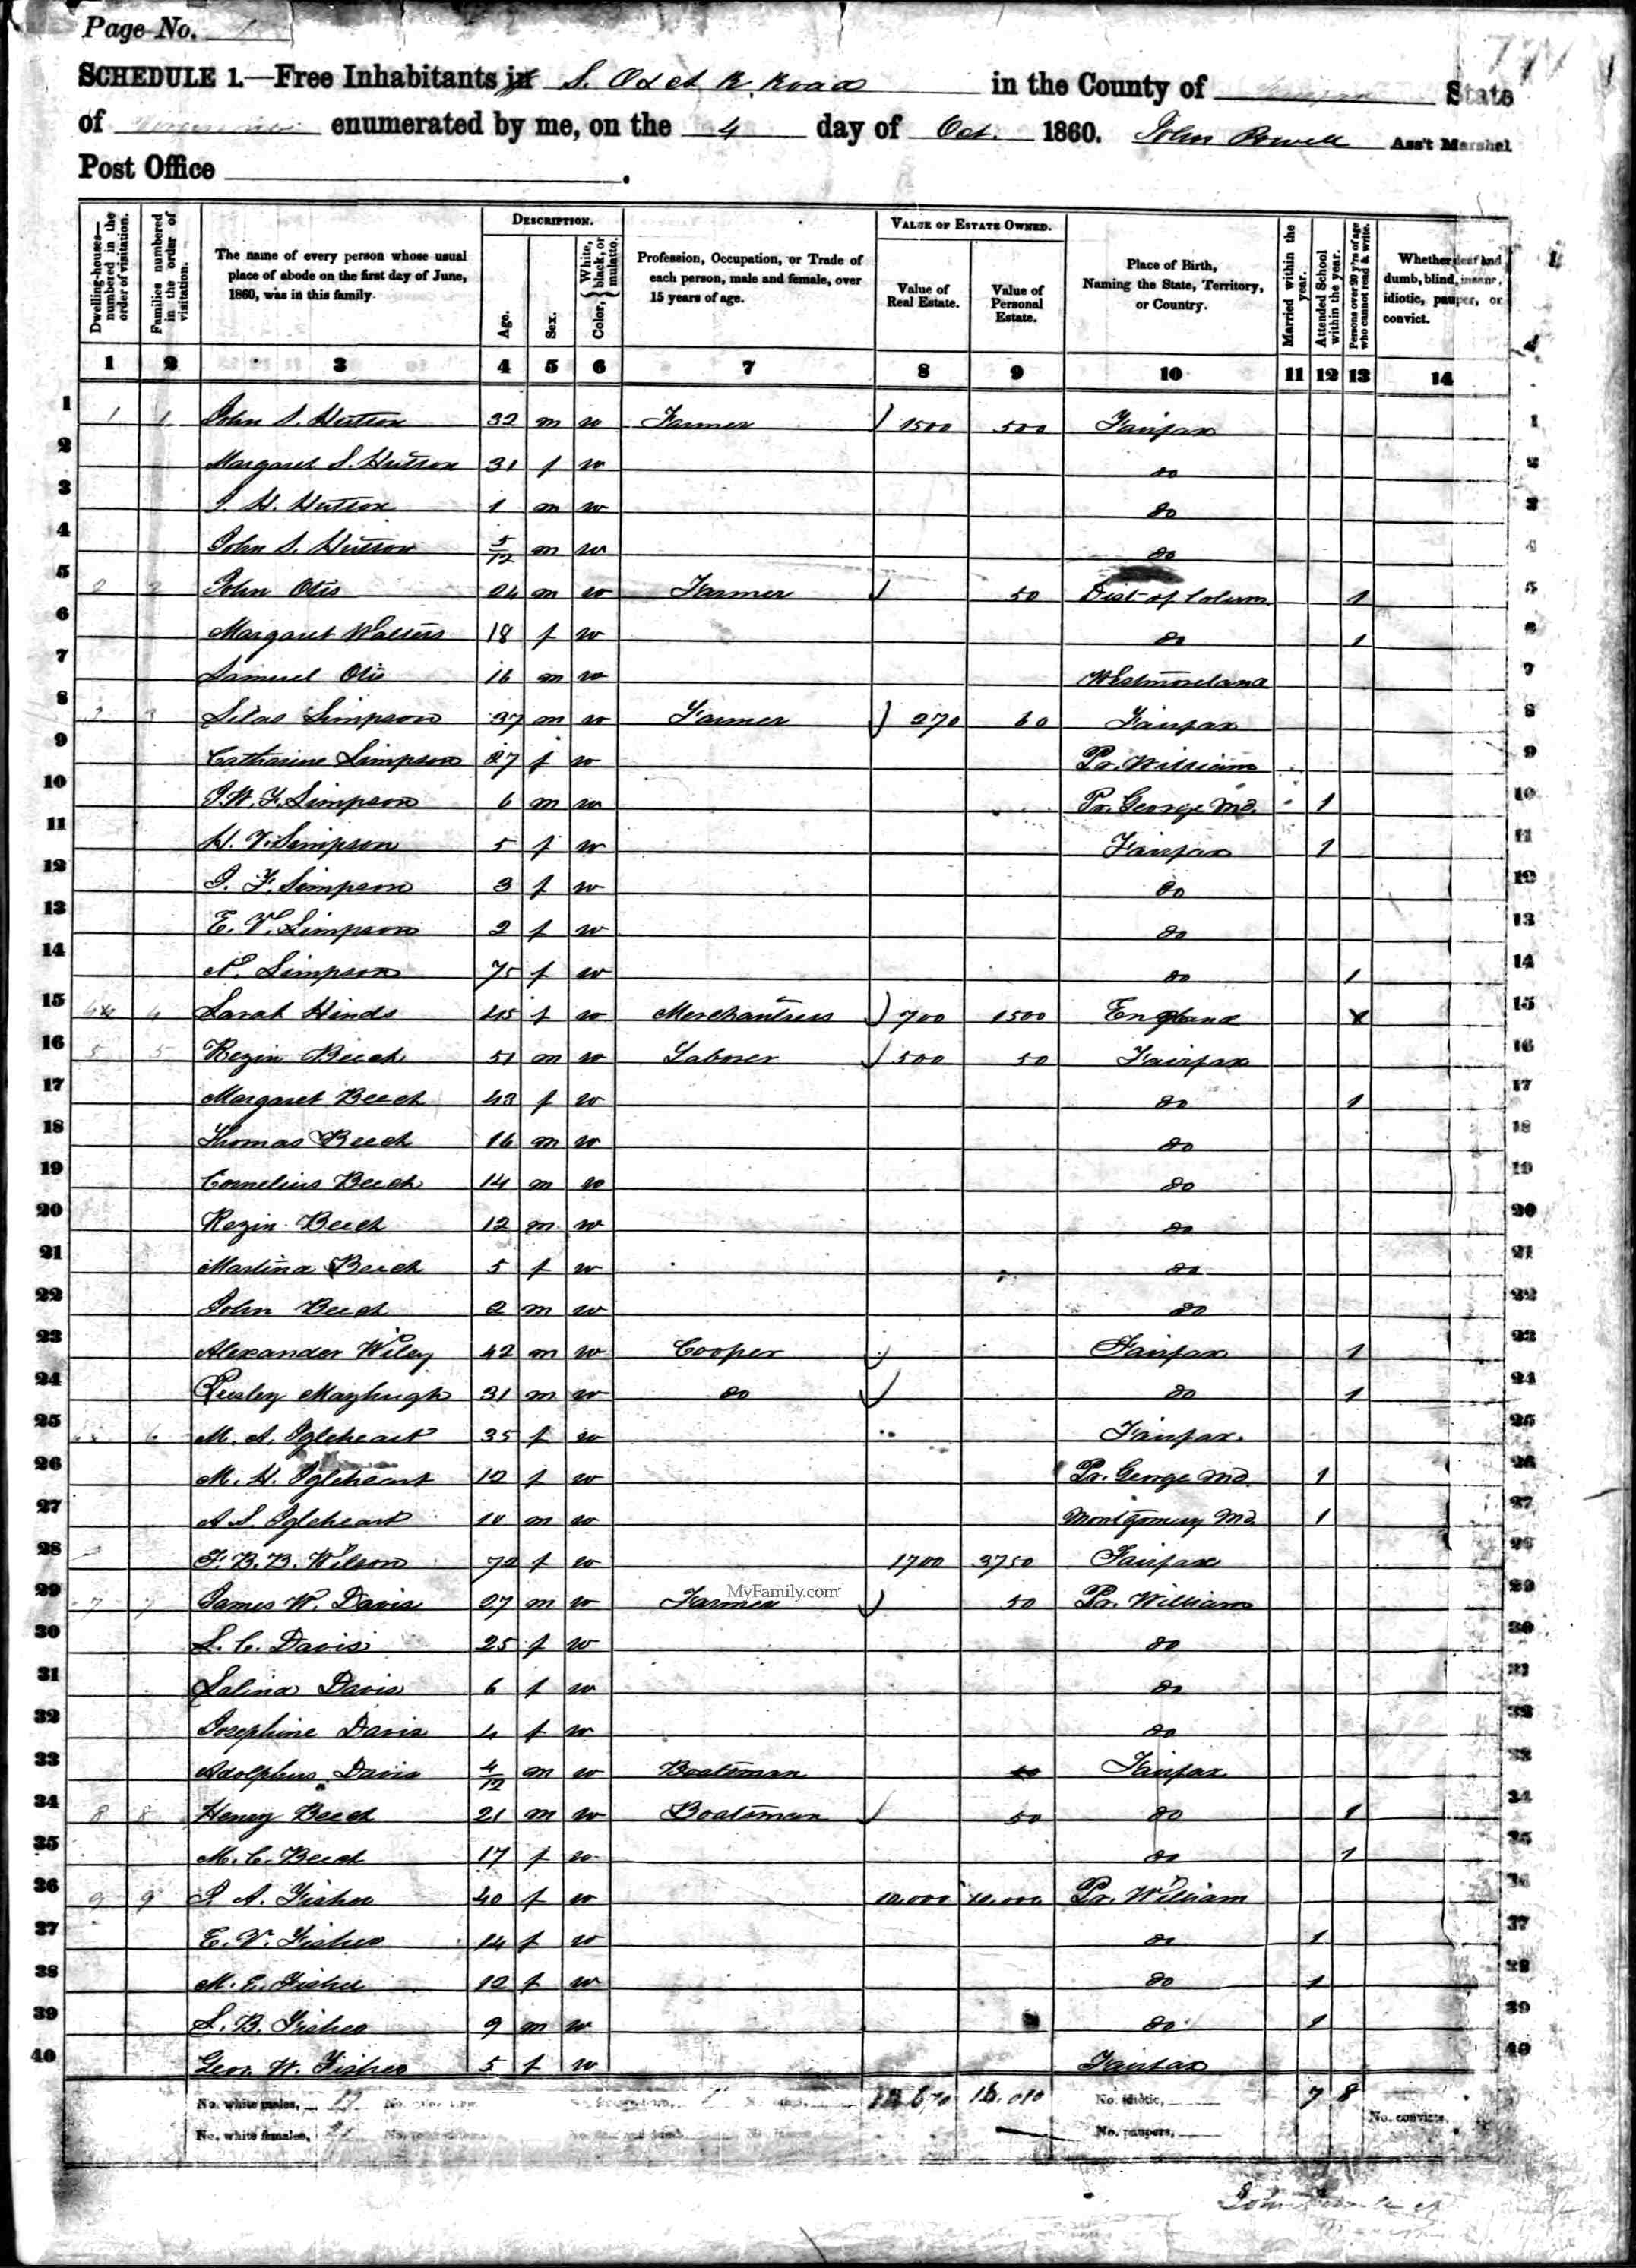 Page No. 1
SCHEDULE 1.—Free Inhabitants in S. O & A R. Road in the County of Fairfax State
of Virginia enumerated by me, on the 4 day of Oct. 1860. John Powell Ass't Marshal
Post Office .
Dwelling-houses—numbered in the order of visitation. Families numbered in the order of visitation. The name of every person whose usual place of abode on the first day of June, 1860, was in this family. DESCRIPTION. Age. Sex. Color, { White, black, or mulatto. Profession, Occupation, or Trade of each person, male and female, over 15 years of age. VALUE OF ESTATE OWNED. Value of Real Estate. Value of Personal Estate. Place of Birth, Naming the State, Territory, or Country. Married within the year. Attended School within the year. Persons over 20 y'rs of age who cannot read & write. Whether deaf and dumb, blind, insane, idiotic, pauper, or convict.
1 2 3 4 5 6 7 8 9 10 11 12 13 14
1 1 1 John S. Hutson 32 m w Farmer 1500 500 Fairfax 1
2 Margaret S. Hutson 31 f w do 2
3 J. H. Hutson 1 m w do 3
4 John S. Hutson 5/12 m w do 4
5 2 2 John Otis 24 m w Farmer 50 Dist of Colum 1 5
6 Margaret Walters 18 f w do 1 6
7 Samuel Otis 16 m w Westmoreland 7
8 3 3 Silas Simpson 37 m w Farmer 270 60 Fairfax 8
9 Catharine Simpson 27 f w Pr. William 9
10 J. W. F. Simpson 6 m w Pr. George Md. 1 10
11 H. V. Simpson 5 f w Fairfax 1 11
12 J. F. Simpson 3 f w do 12
13 E. V. Simpson 2 f w do 13
14 N. Simpson 75 f w do 1 14
15 4 4 Sarah Hinds 45 f w Merchantress 700 1500 England 15
16 5 5 Rezin Beech 51 m w Laborer 500 50 Fairfax 16
17 Margaret Beech 43 f w do 1 17
18 Thomas Beech 16 m w do 18
19 Cornelius Beech 14 m w do 19
20 Rezin Beech 12 m w do 20
21 Martina Beech 5 f w do 21
22 John Beech 2 m w do 22
23 Alexander Wiley 42 m w Cooper Fairfax 1 23
24 Presley Mayhugh 31 m w do do 1 24
25 6 M. A. Igleheart 35 f w Fairfax 25
26 M. H. Igleheart 12 f w Pr. George Md. 1 26
27 A. S. Igleheart 10 m w Montgomery Md. 1 27
28 F. B. B. Wilson 72 f w 1700 3750 Fairfax 28
MyFamily.com
29 7 7 James W. Davis 27 m w Farmer 50 Pr. William 29
30 S. C. Davis 25 f w do 30
31 Salina Davis 6 f w do 31
32 Josephine Davis 4 f w do 32
33 Adolphus Davis 4/12 m w Boatsman Fairfax 33
34 8 8 Henry Beech 21 m w Boatsman 50 do 1 34
35 M. C. Beech 17 f w do 1 35
36 9 9 J. A. Fisher 40 f w 10,000 10,000 Pr. William 36
37 E. V. Fisher 14 f w do 1 37
38 M. E. Fisher 12 f w do 1 38
39 S. B. Fisher 9 m w do 1 39
40 Geor. W. Fisher 5 f w Fairfax 40
No. white males, No. idiotic, 7 8 No. convicts,
No. white females, No. paupers,